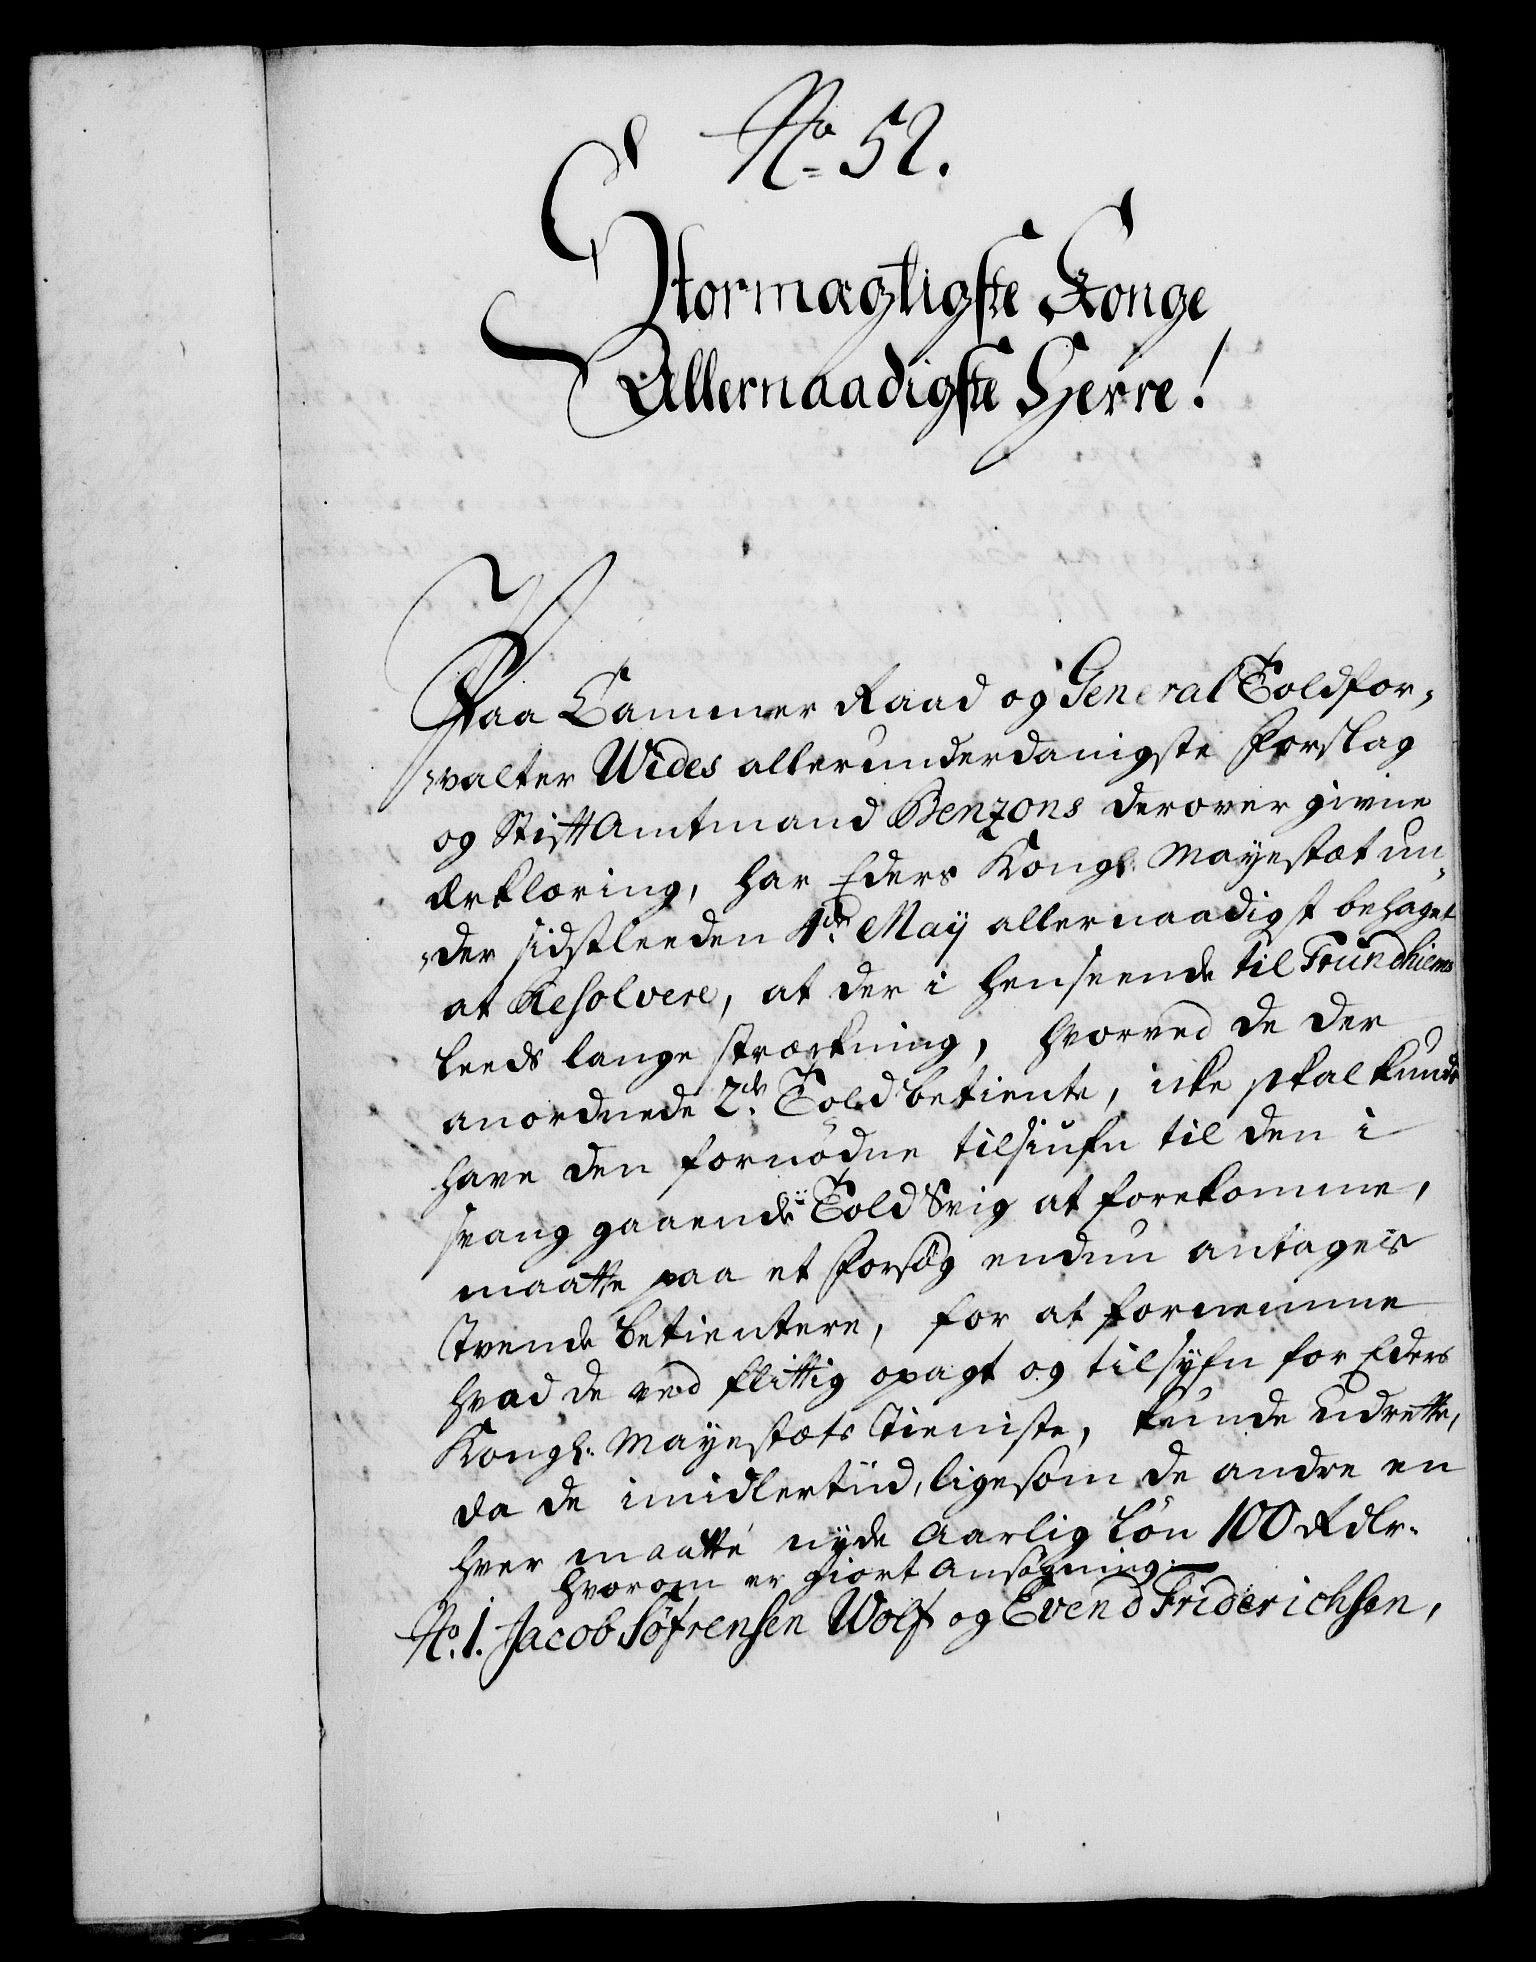 No. 52.
Stormægtigste Konge
Allernaadigste Herre!
Paa Cammer Raad og General Toldfor,
,valter Wides allerunderdanigste Forslag
og Stiftamtmand Benzons derover givne
Erklæring, har Eders Kongl. Mayestæt un,
,der sidstleeden 1de May allernaadigst behaget
at Resolvere, at der i henseende til Trundhiems
leeds lange strækning, hvorved de der
anordnede 2de Toldbetiente, icke skal kunde
have den fornødne tilsiufn til den i
svang gaaende Told Svig at forekomme,
maatte paa et Forsøg endnu antages
Tvende betientere, for at fornemme
hvad de ved flittig opagt og tilsyfn for Eders
Kongl. Mayestæts Tieniste, kunde udrette,
da de imidlertiid, ligesom de andre en
hver maatte nyde Aarlig Løn 100 Rdlr.
hvorom er giort Ansøgning:
No. 1. Jacob Søfrensen Wolf og Evend Friderichsen,